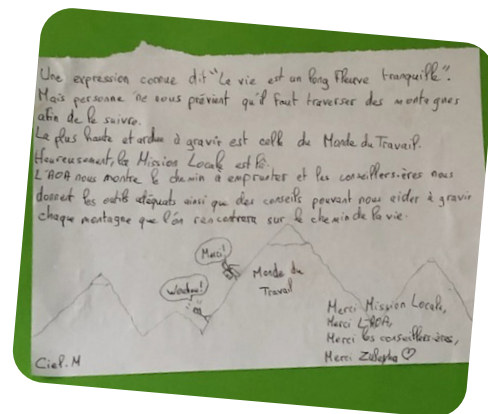 Une expression connue dit "La vie est un long fleuve tranquille".
Mais personne ne nous prévient qu'il faut traverser des montagnes
afin de le suivre.
La plus haute et ardue à gravir est celle du Monde du Travail.
Heureusement, la Mission Locale est là.
L'AOA nous montre le chemin à emprunter et les conseillers-ères nous
donnent les outils adéquats ainsi que des conseils pouvant nous aider à gravir
chaque montagne que l'on rencontrera sur le chemin de la vie.
Merci!
Monde du
Travail
Wouhou!
Merci Mission Locale,
Merci L'AOA,
Merci les conseillers-ères,
Merci
Ciel.M